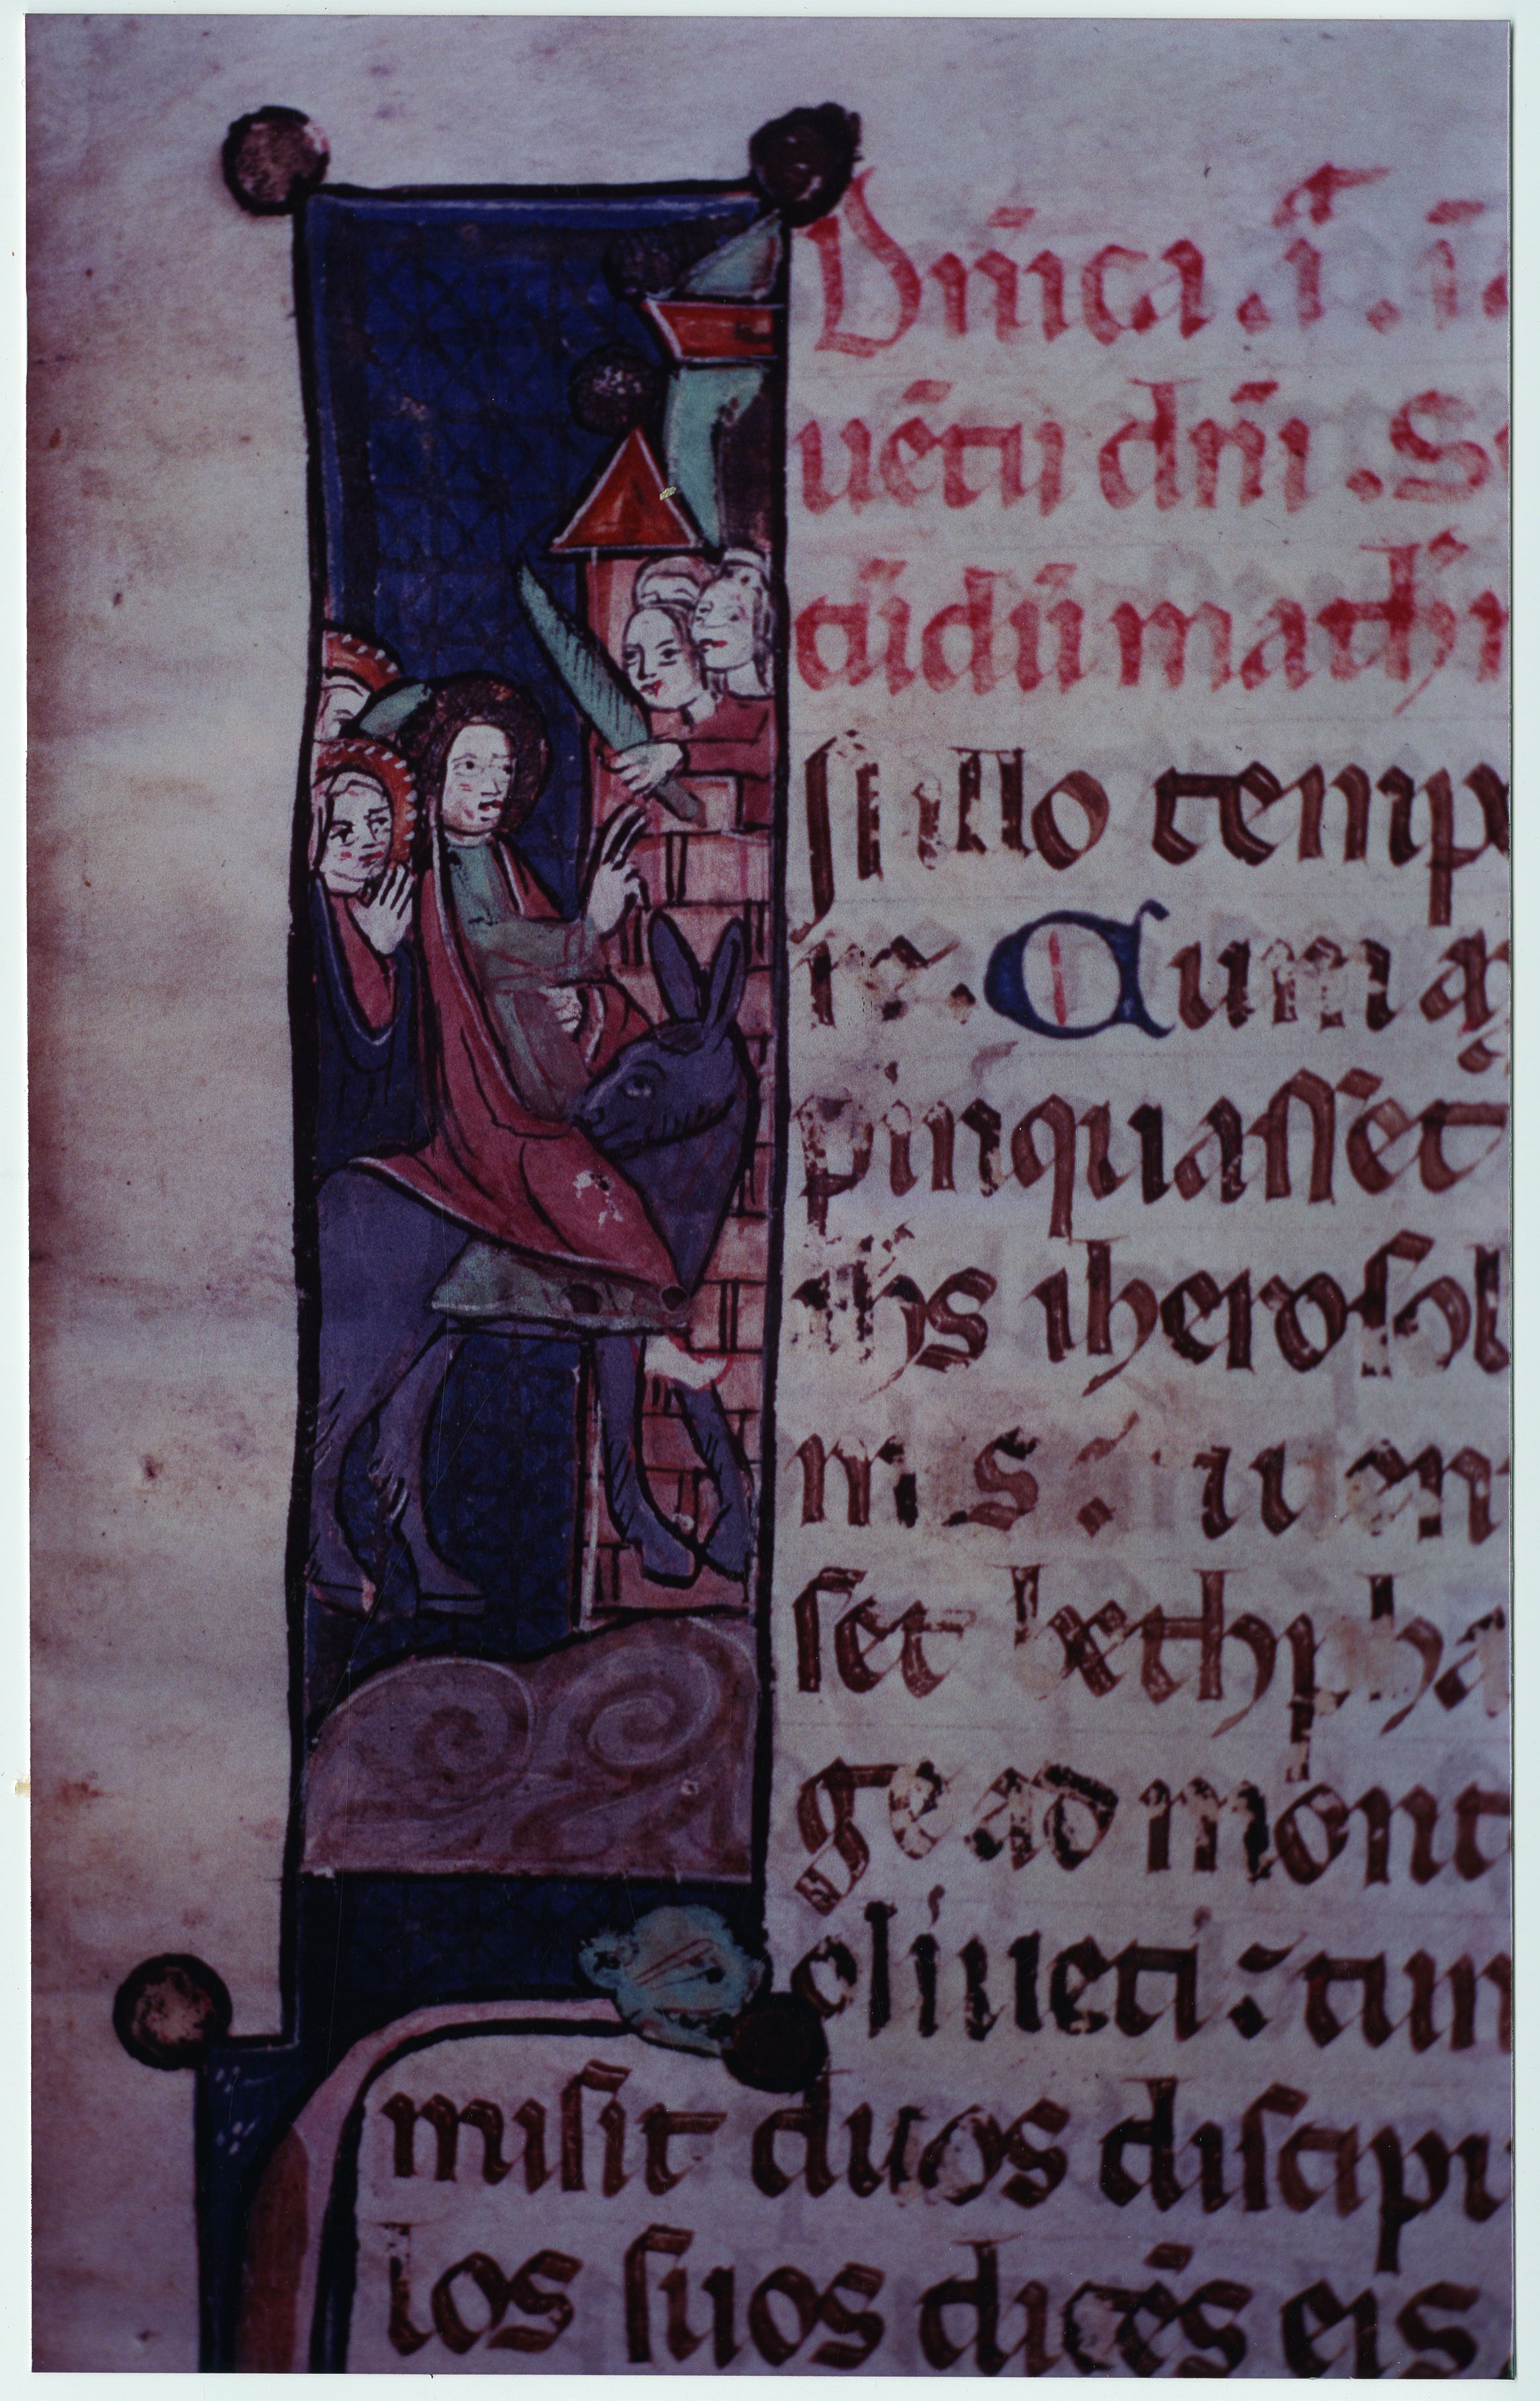 Dn̄ica . i . i
uētu dn̄i . S
cūdū math
N illo temp
ir . Cum a
pinquasset
ihs iherosol
mis : u en
set bethpha
ge ad mont
oliueti : tun
misit duos discipu
los suos dicēs eis